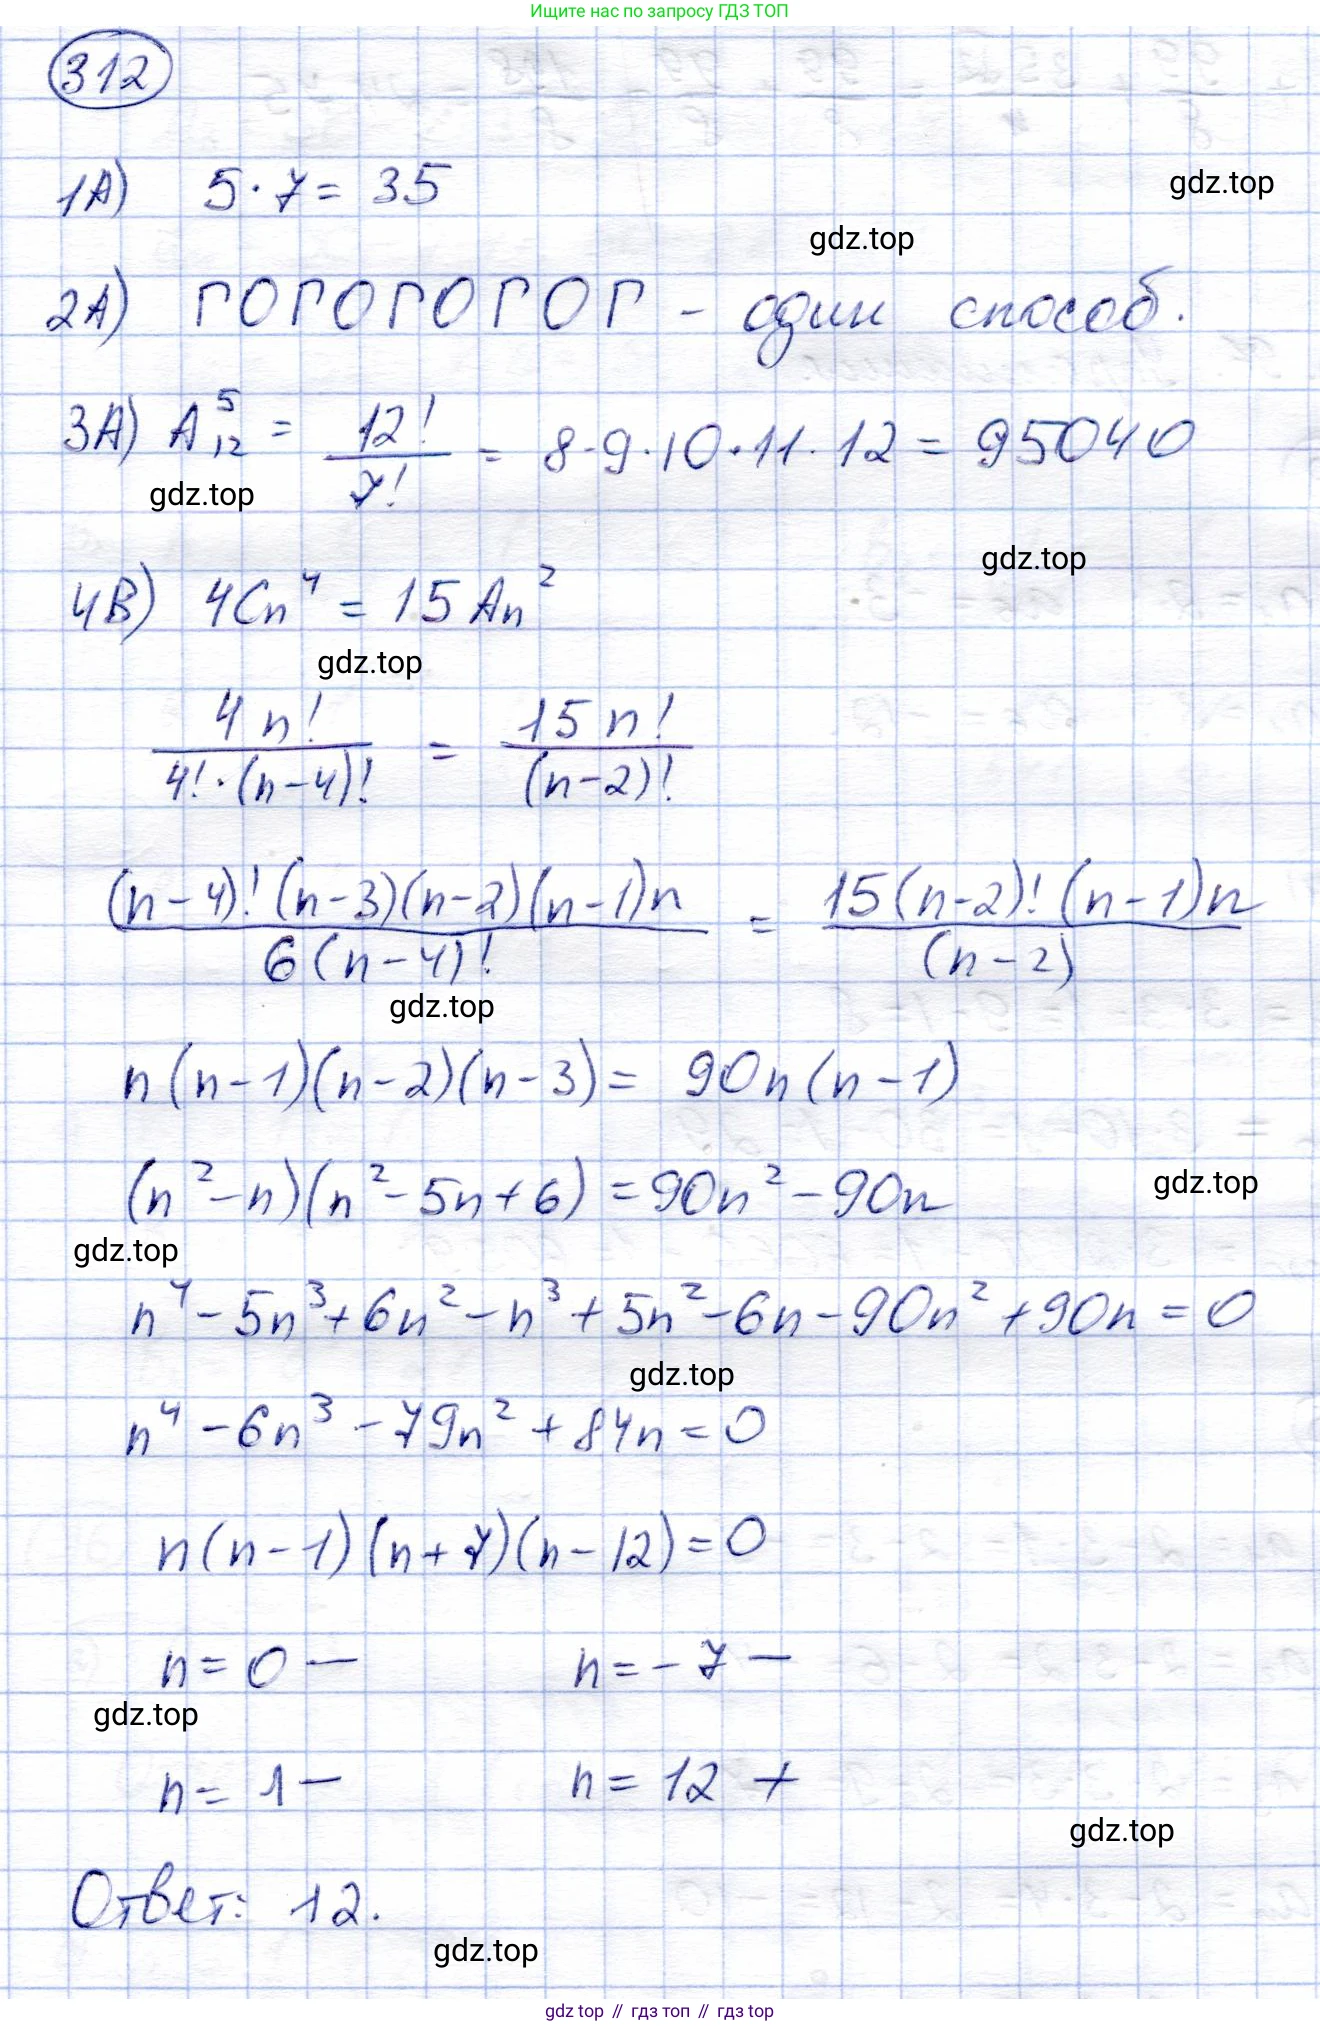 Ищите нас по запросу ГДЗ ТОП
312
1А) 5·7 = 35
gdz.top
gdz.top
2А) ГОГОГОГОГ - один способ.
3А) A₁₂⁵ = 12!/7! = 8·9·10·11·12 = 95040
gdz.top
gdz.top
4В) 4Cn⁴ = 15An²
gdz.top
4n!/(4!·(n-4)!) = 15n!/(n-2)!
(n-4)!(n-3)(n-2)(n-1)n/6(n-4)! = 15(n-2)!(n-1)n/(n-2)
gdz.top
n(n-1)(n-2)(n-3) = 90n(n-1)
(n²-n)(n²-5n+6) = 90n²-90n
gdz.top
gdz.top
n⁴-5n³+6n²-n³+5n²-6n-90n²+90n=0
gdz.top
n⁴-6n³-79n²+84n=0
n(n-1)(n+7)(n-12)=0
n=0 — n=-7 —
gdz.top
n=1 — n=12 +
gdz.top
Ответ: 12.
gdz.top
gdz top // гдз топ // гдз top